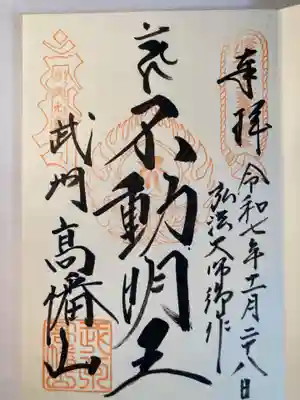 奉拝
令和七年十二月二十八日
弘法大師御作
不動明王
武州
高幡山